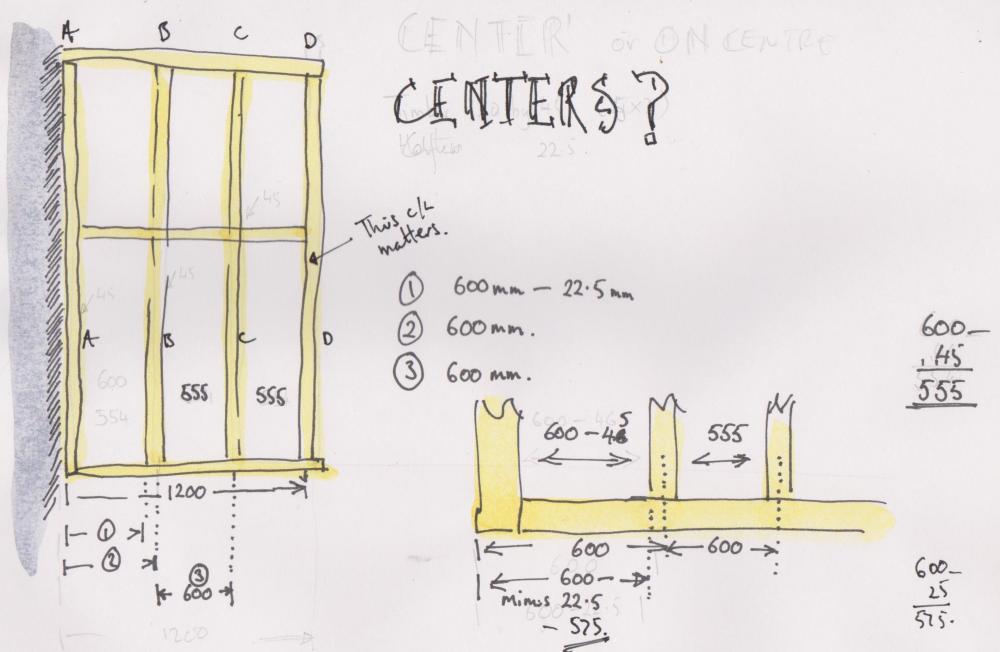 CENTER' or ON CENTRE
CENTERS?
22.5
A B C D
This c/L
matters.
45
45
45
A B C D
600
554
555 555
① 600mm - 22.5mm
② 600mm.
③ 600mm.
600-
45
555
1200
①
②
③
600
1200
600-465
600-45
555
600 600
600-
minus 22.5
- 575.
600-22.5
600-
25
575.